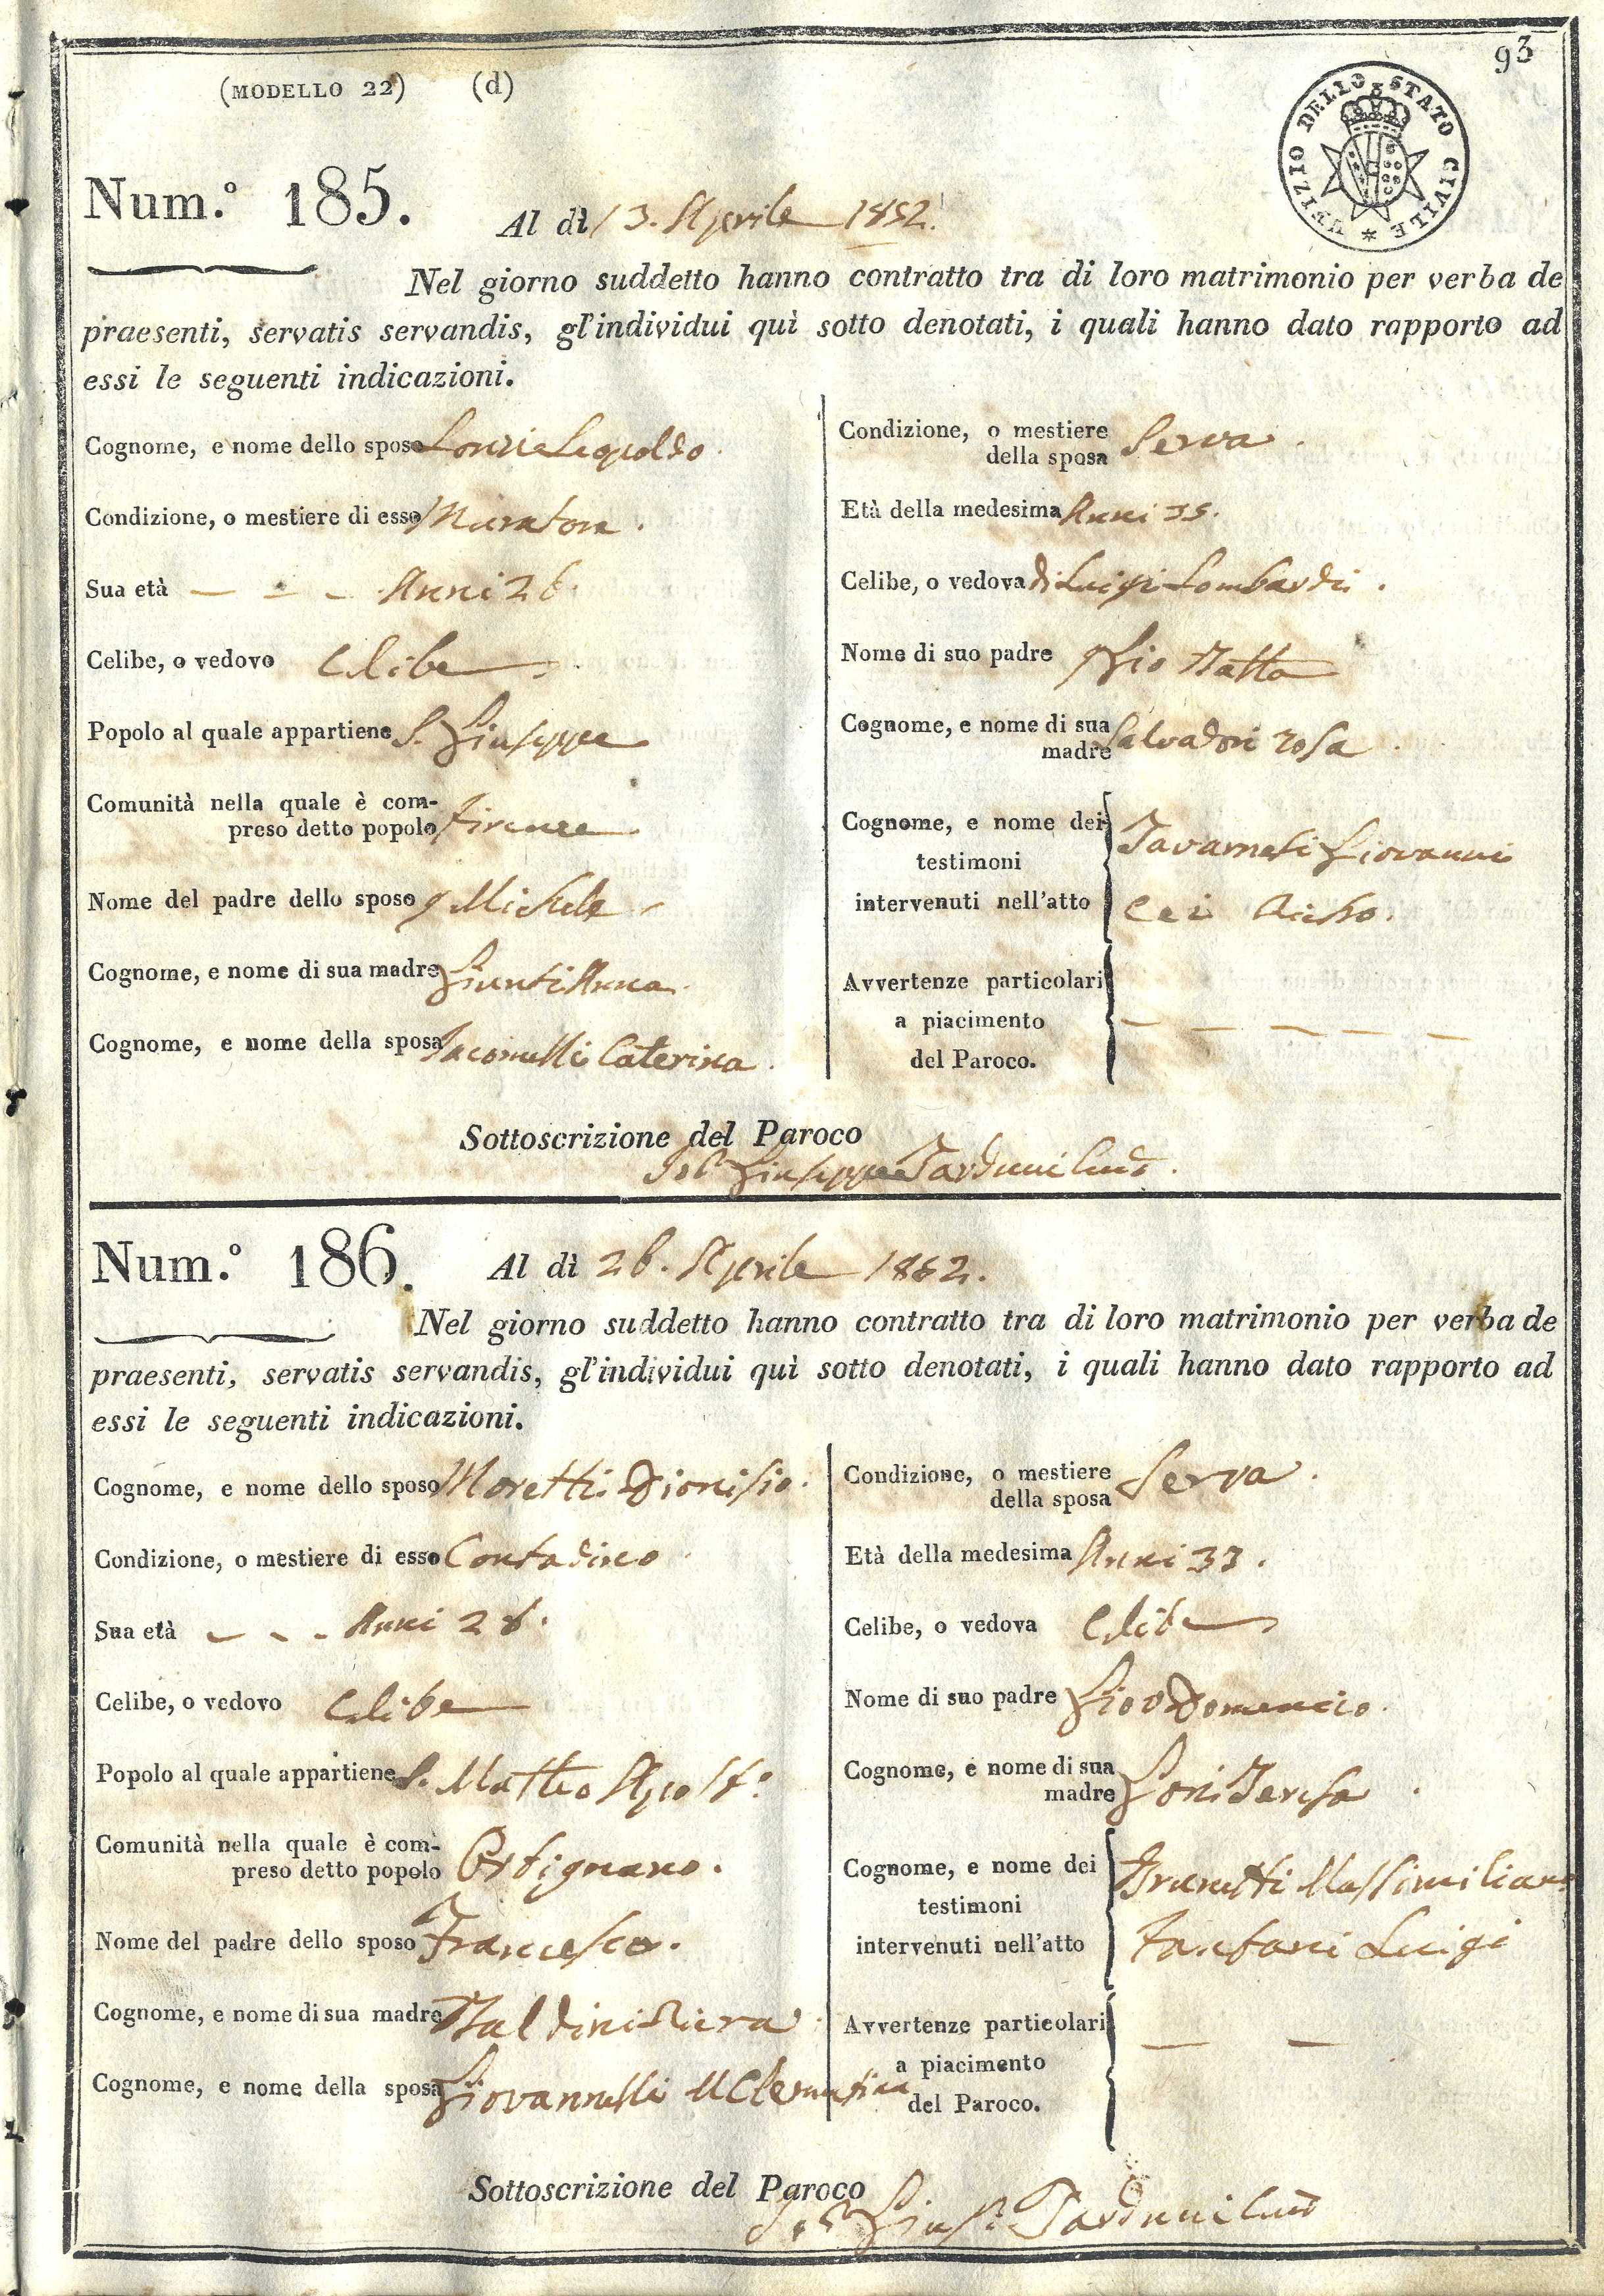 93
(MODELLO 22) (d)
UFIZIO DELLO STATO CIVILE *
Num.° 185. Al dì 13. Aprile 1852.
Nel giorno suddetto hanno contratto tra di loro matrimonio per verba de
praesenti, servatis servandis, gl'individui quì sotto denotati, i quali hanno dato rapporto ad
essi le seguenti indicazioni.
Cognome, e nome dello sposo Leopoldo
Condizione, o mestiere di esso Muratore.
Sua età Anni 26.
Celibe, o vedovo Celibe
Popolo al quale appartiene S. Giuseppe
Comunità nella quale è com-
preso detto popolo Firenze
Nome del padre dello sposo Michele
Cognome, e nome di sua madre Giunti Anna
Cognome, e nome della sposa Iacomelli Caterina
Condizione, o mestiere Serva.
della sposa
Età della medesima Anni 35.
Celibe, o vedova di Luigi Lombardi.
Nome di suo padre Gio Batta
Cognome, e nome di sua
madre Salvadori rosa
Cognome, e nome dei
testimoni Giovanni
intervenuti nell'atto Cei
Avvertenze particolari
a piacimento
del Paroco.
Sottoscrizione del Paroco
Giuseppe Tarduni
Num.° 186. Al dì 26. Aprile 1852.
Nel giorno suddetto hanno contratto tra di loro matrimonio per verba de
praesenti, servatis servandis, gl'individui quì sotto denotati, i quali hanno dato rapporto ad
essi le seguenti indicazioni.
Cognome, e nome dello sposo Moretti Dionisio.
Condizione, o mestiere di esso Contadino
Sua età Anni 28.
Celibe, o vedovo Celibe
Popolo al quale appartiene S. Matteo Apost°
Comunità nella quale è com-
preso detto popolo Ortignano.
Nome del padre dello sposo Francesco.
Cognome, e nome di sua madre Baldini
Cognome, e nome della sposa Giovannelli M Clementina
Condizione, o mestiere Serva.
della sposa
Età della medesima Anni 33.
Celibe, o vedova Celibe
Nome di suo padre Gio Domenico.
Cognome, e nome di sua
madre Goni Teresa
Cognome, e nome dei Brunetti Massimiliano
testimoni
intervenuti nell'atto Fanfani Luigi
Avvertenze particolari
a piacimento
del Paroco.
Sottoscrizione del Paroco
Tarduni